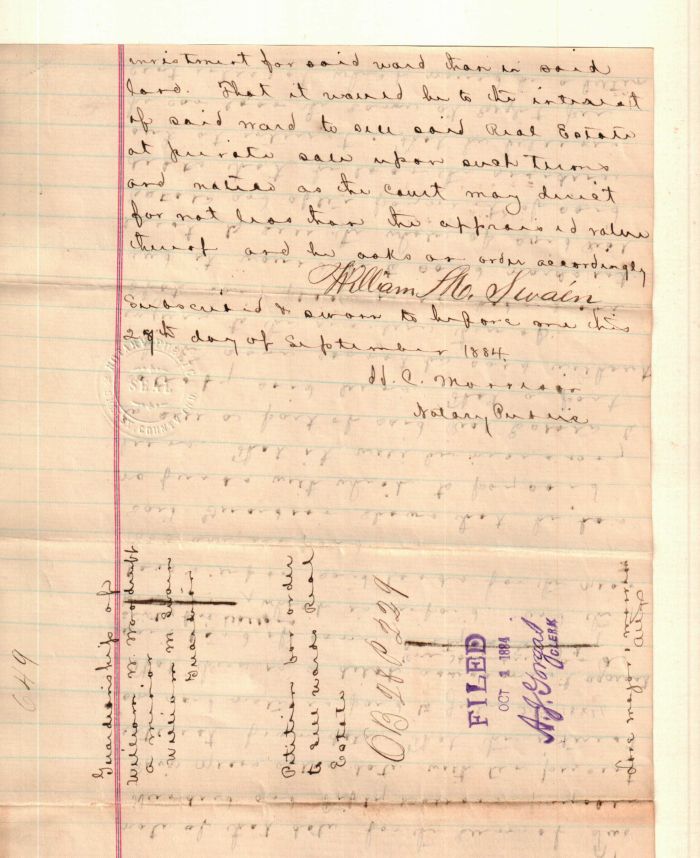 investment for said ward than in said
land. That it would be to the interest
of said ward to sell said Real Estate
at private sale upon such terms
and notice as the court may direct
for not less than the appraised value
thereof and he asks an order accordingly
William M. Swain
Subscribed & sworn to before me this
29th day of September 1884.
H. C. Morrison
Notary Public
SEAL
Guardianship of
William W Woodruff
a minor
William M Swain
Guardian
Petition for order
to sell wards Real
Estate
OB 229
FILED
OCT 1 1884
A.J. Gorgas
CLERK
Love Major & Morrison
Attys
649